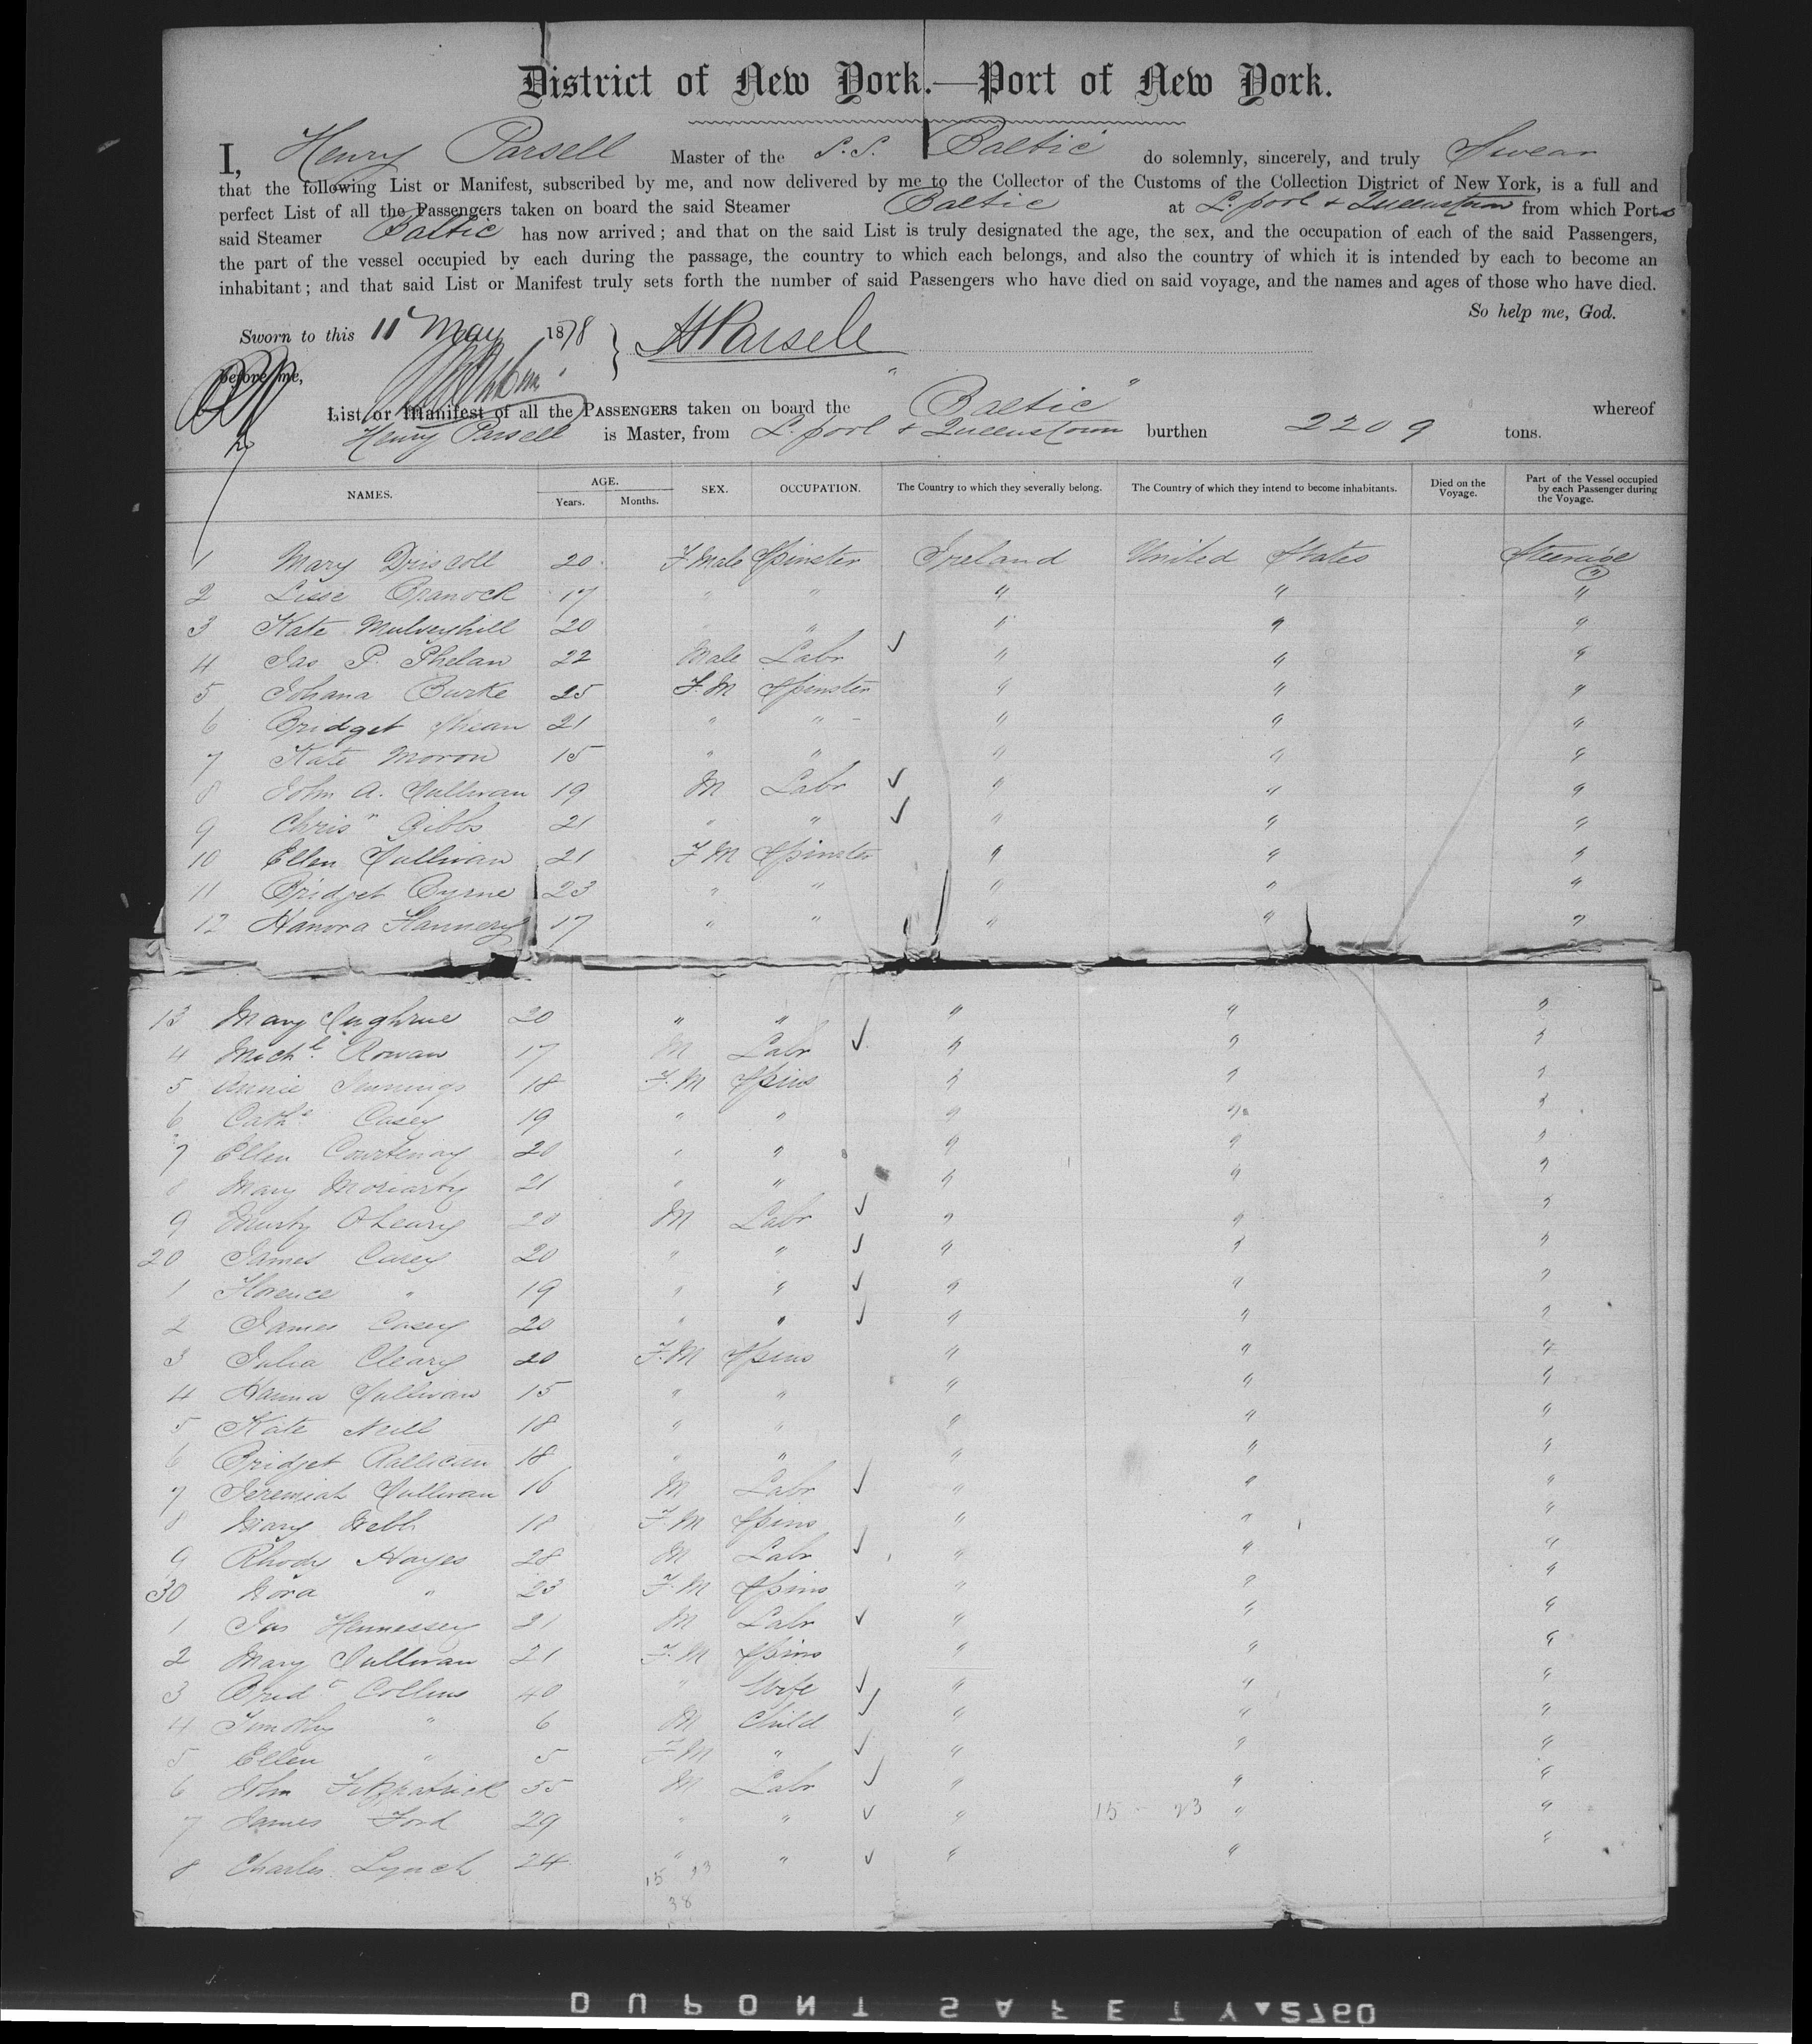 District of New York.—Port of New York.
I, Henry Parsell Master of the S.S. Baltic do solemnly, sincerely, and truly Swear
that the following List or Manifest, subscribed by me, and now delivered by me to the Collector of the Customs of the Collection District of New York, is a full and
perfect List of all the Passengers taken on board the said Steamer Baltic at L.pool & Queenstown from which Ports
said Steamer Baltic has now arrived; and that on the said List is truly designated the age, the sex, and the occupation of each of the said Passengers,
the part of the vessel occupied by each during the passage, the country to which each belongs, and also the country of which it is intended by each to become an
inhabitant; and that said List or Manifest truly sets forth the number of said Passengers who have died on said voyage, and the names and ages of those who have died.
So help me, God.
Sworn to this 11 May 1878 } H Parsell
before me,
List or Manifest of all the PASSENGERS taken on board the "Baltic" whereof
Henry Parsell is Master, from L.pool & Queenstown burthen 2209 tons.
NAMES. AGE. Years. Months. SEX. OCCUPATION. The Country to which they severally belong. The Country of which they intend to become inhabitants. Died on the Voyage. Part of the Vessel occupied by each Passenger during the Voyage.
1 Mary Driscoll 20 F Male Spinster Ireland United States Steerage
2 Lisse 17 " " " " "
3 Kate Mulveyhill 20 " " " "
4 Jas P. Phelan 22 Male Labr ✓ " " "
5 Johana Burke 25 F.M Spinster " " "
6 Bridget Shean 21 " " " " "
7 Kate Moron 15 " " " " "
8 John A. Sullivan 19 M Labr ✓ " " "
9 Chris" Gibbs 21 " " ✓ " " "
10 Ellen Sullivan 21 F M Spinster " " "
11 Bridget Byrne 23 " " " " "
12 Hanora Flannery 17 " " " " "
13 Mary Sughrue 20 " " " " "
4 Michl. Rowan 17 M Labr ✓ " " "
5 Annie Jennings 18 F.M Spins " " "
6 Cathe Casey 19 " " " " "
7 Ellen Courtenay 20 " " " " "
8 Mary Moriarty 21 " " " " "
9 Murty OLeary 20 M Labr ✓ " " "
20 James Curey 20 " " ✓ " " "
1 Florence " 19 " " ✓ " " "
2 James Casey 20 " " ✓ " " "
3 Julia Cleary 20 F.M Spins " " "
4 Hanna Sullivan 15 " " " " "
5 Kate Neill 18 " " " " "
6 Bridget 18 " " " " "
7 Jeremiah Sullivan 16 M Labr ✓ " " "
8 Mary Webb 18 F.M Spins " " "
9 Rhody Hayes 28 M Labr ✓ " " "
30 Nora " 23 F.M Spins " " "
1 Jas Hennessey 21 M Labr ✓ " " "
2 Mary Sullivan 21 F.M Spins " " "
3 Bridt Collins 40 " Wife ✓ " " "
4 Timothy " 6 M Child ✓ " " "
5 Ellen " 5 F M " ✓ " " "
6 John Fitzpatrick 55 M Labr ✓ " " "
7 James Ford 29 " " ✓ " 15 - 23 " "
8 Charles Lynch 24 " " ✓ " " "
15 23
38
DUPONT SAFETY▲2760